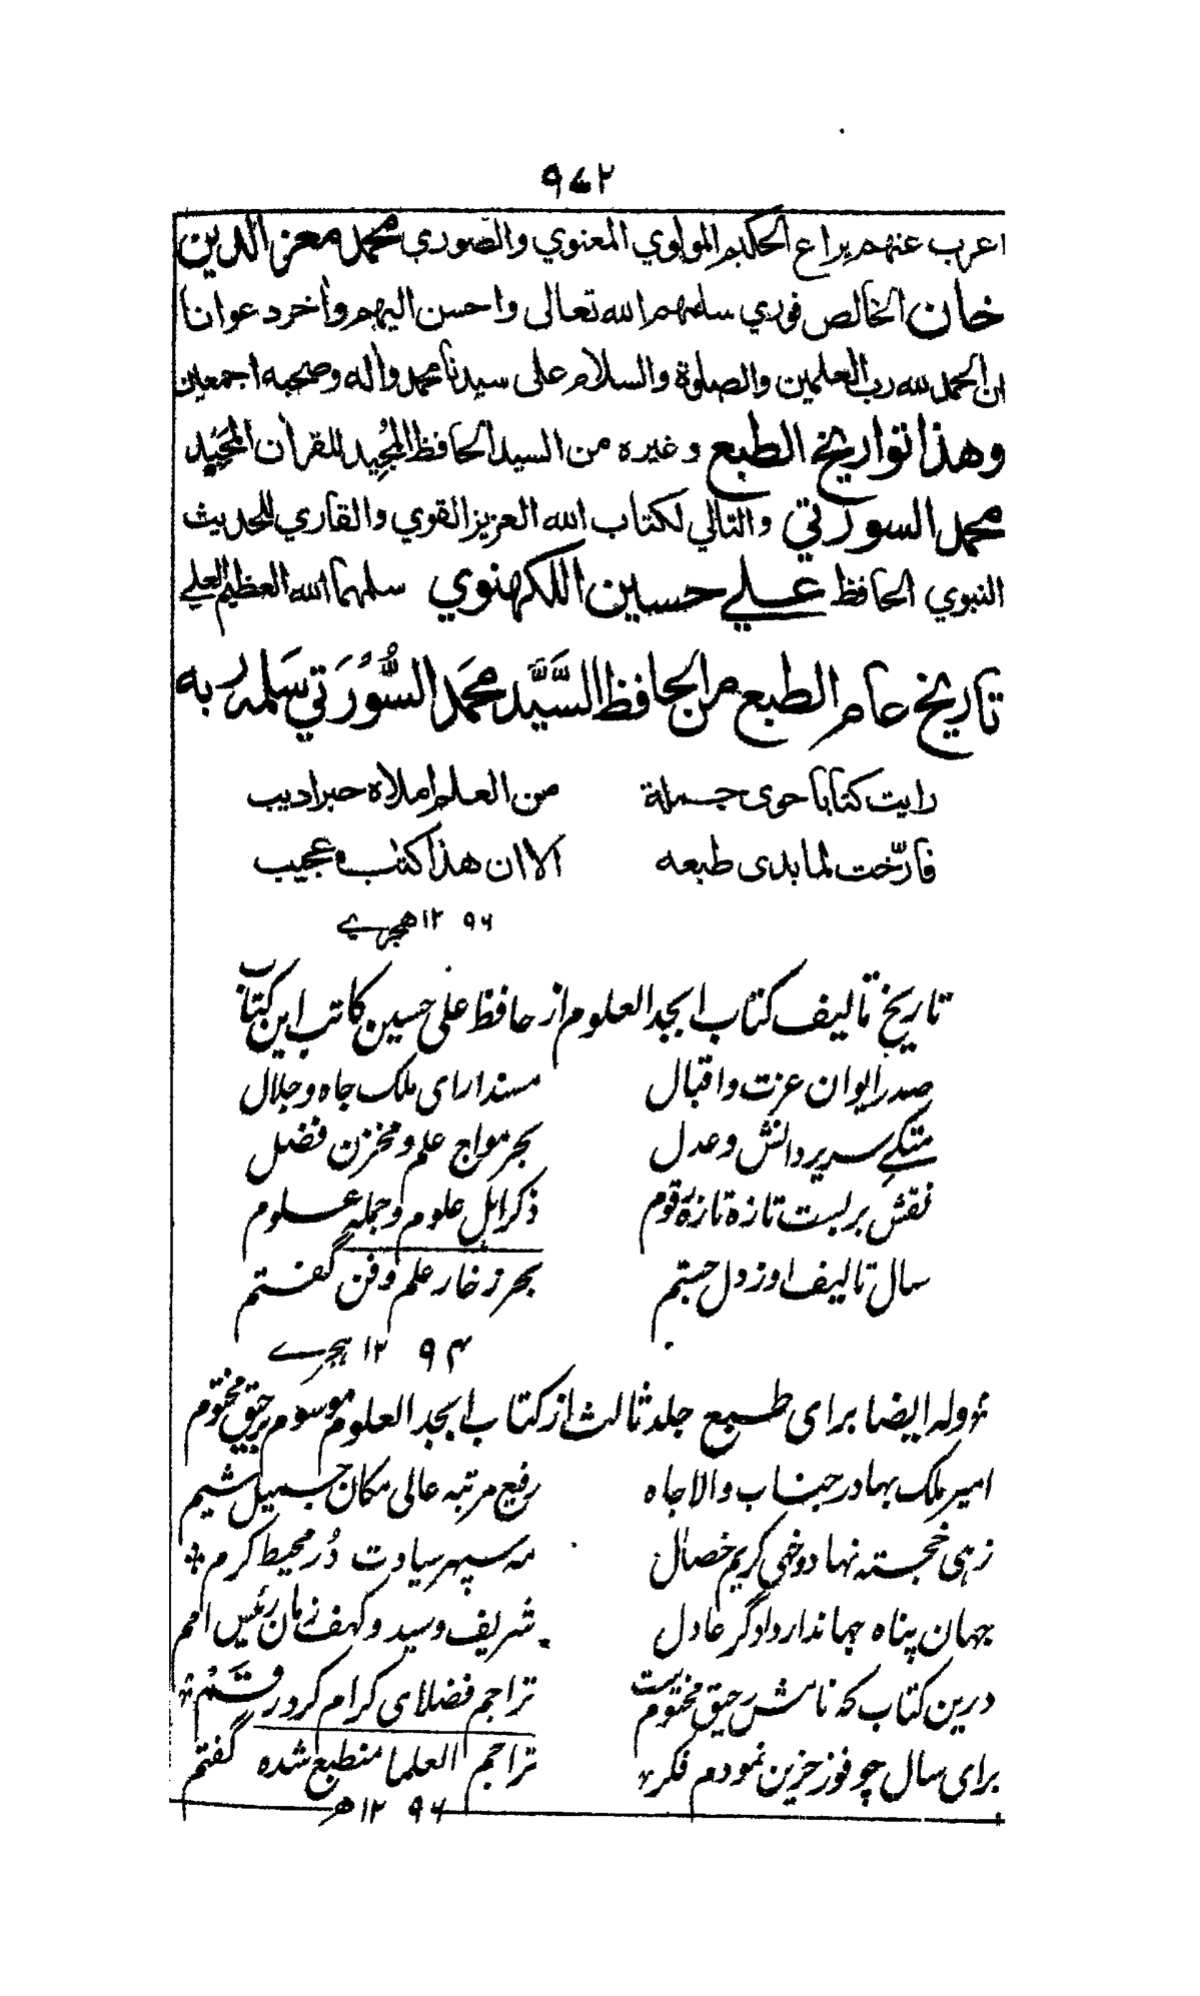 ٩٧٢
اعرب عنهم يراع الحكيم المولوي المعنوي والصوري محمد معز الدين
خان الخالص فوري سلمهم الله تعالى واحسن اليهم وأخر دعوانا
ان الحمد لله رب العلمين والصلوة والسلام على سيدنا محمد واله وصحبه اجمعين
وهذا تواريخ الطبع وغيره من السيد الحافظ المُجِيد للقرأن المَجِيد
محمد السورتي والتالي لكتاب الله العزيز القوي والقاري للحديث
النبوي الحافظ علي حسين اللكهنوي سلمهما الله العظيم العلي
تاريخ عام الطبع من الحافظ السَّيَّد محمَد السُّوُرَتي سَلمه ربه
رايت كتابا حوى جملة من العلم املاه حبر اديب
فارّخت لما بدى طبعه الا ان هذا كتاب عجيب
١٢٩٦ هجري
تاریخ تالیف کتاب ابجد العلوم از حافظ علی حسین کاتب این کتاب
صدر ایوان عزت واقبال مسند ارای ملک جاه وجلال
متکے سریر دانش وعدل بحر مواج علم ومخزن فضل
نقش بر بست تازه تازه رقوم ذکر اہل علوم وجملہ علوم
سال تالیف او ز دل جستم بحر زخار علم وفن گفتم
١٢٩٤ ہجرے
وله ایضا برای طبع جلد ثالث از کتاب ابجد العلوم موسوم برحیق مختوم
امیر ملک بهادر جناب والا جاه رفیع مرتبه عالی مکان جمیل شیم
زہی خجسته نهاد وخہی کریم خصال مه سپهر سیادت دُر محیط کرم
جهان پناه جهاندار دادگر عادل شریف وسید وکهف زمان رئیس امم
درین کتاب که نامش رحیق مختوم ست تراجم فضلای کرام کرد رقم
برای سال چو فوز حزین نمودم فکر تراجم العلما منطبع شده گفتم
١٢٩٦ ھ